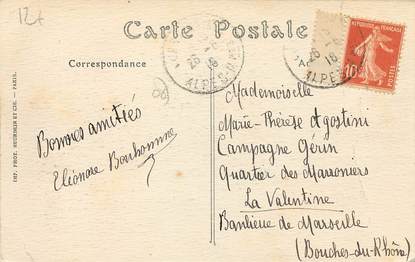 12€
Carte Postale
Correspondance
Bonnes amitiés
Eléonore Bonhomme
Mademoiselle
Marie-Thérèse Agostini
Campagne Gérin
Quartier des Marroniers
La Valentine
Banlieue de Marseille
(Bouches-du-Rhône)
RÉPUBLIQUE FRANÇAISE
10c
POSTES
ALPES
ALPES
IMP. PHOT. NEURDEIN ET CIE. — PARIS.